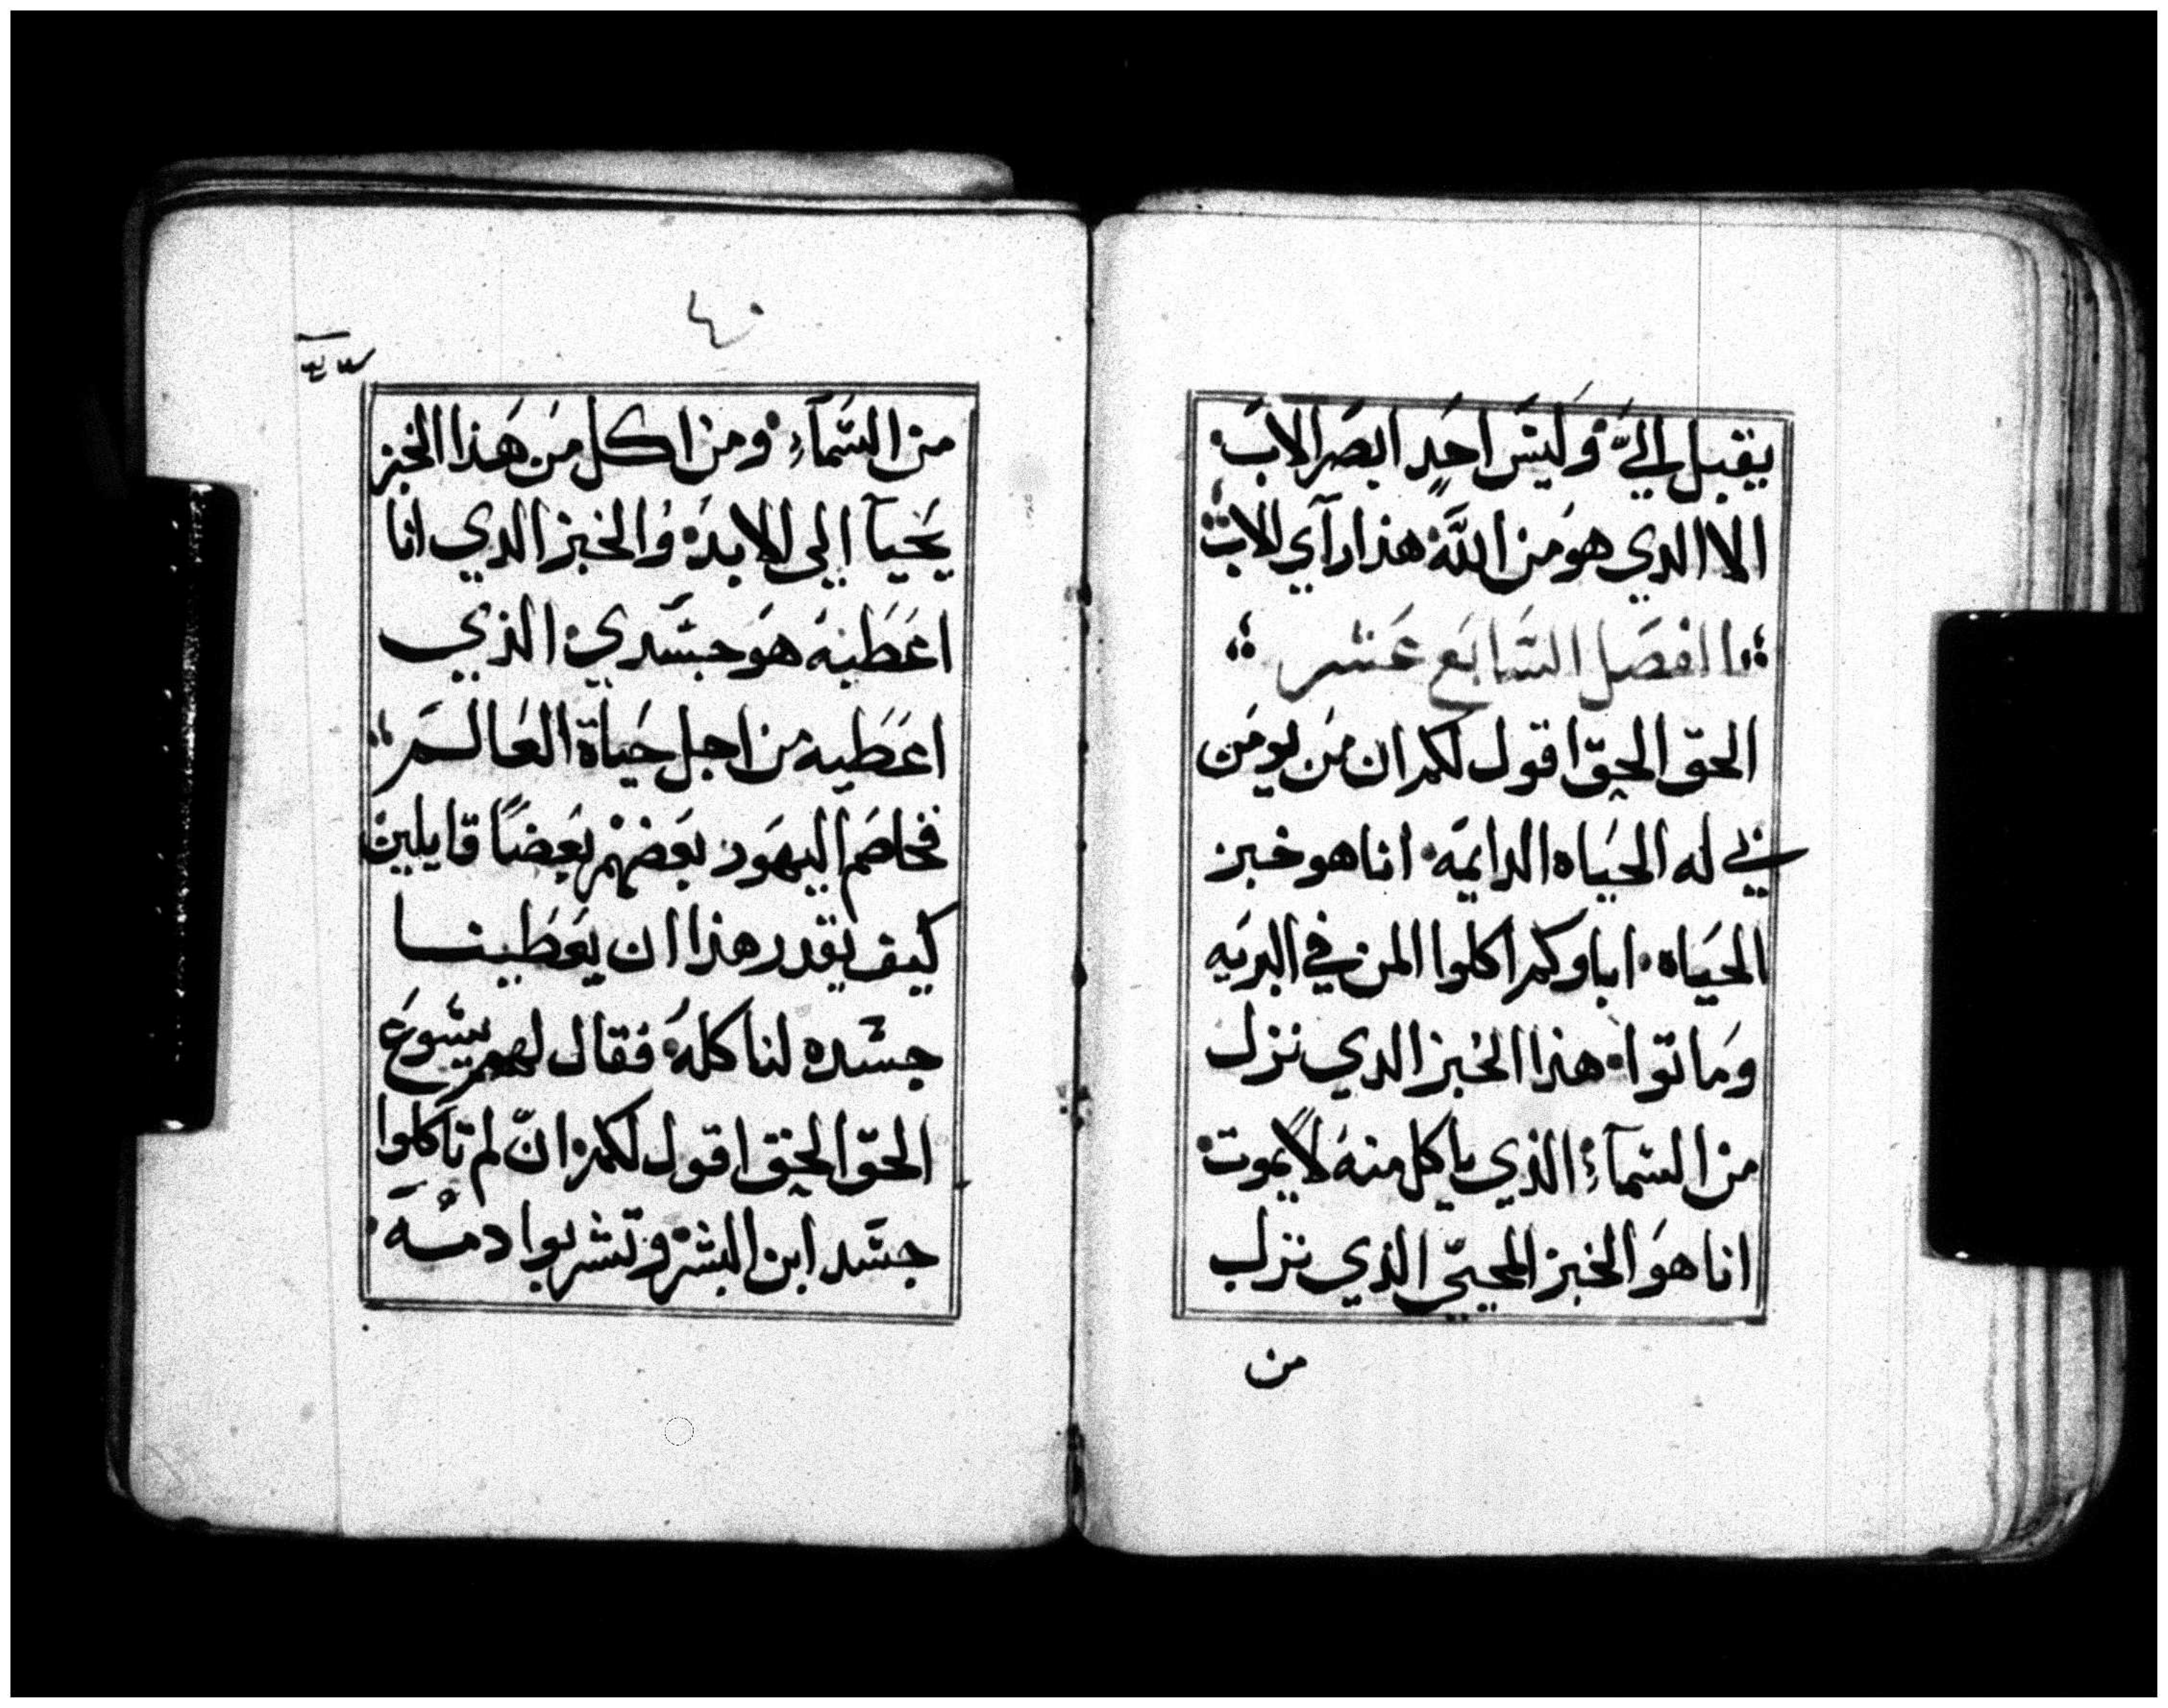 يقبل اليَّ وَليسَ احَد ابصَر الابَ
الا الدي هو من اللّه هذا رآي الاب
الفصَل السَابَع عَشر
الحق الحق اقول لكم ان من يومَن
بي له الحيَاه الدايمَه انا هو خبز
الحيَاه اباوكم اكلوا المن في البريَه
ومَاتوا هذا الخبز الدي نزل
من السَمآءِ الذي ياكل منهُ لا يموت
انا هوَ الخبز المحيّي الذي نزل
من
٤٠
من السَمآءِ ومن اكل من هَذا الخبز
يَحيآ الي الابد وُالخبز الدي انا
اعَطيهَ هوَ جسَدي الذي
اعَطيه من اجل حَياة العَالم
فخاصَم اليهَود بعَضهمْ بعَضاً قايلين
كيف يقدر هذا ان يعَطينا
جسَده لناكلهُ فقال لهم يسَوعَ
الحقّ الحق اقول لكم انّ لم تاكلوا
جسَد ابن البشر وتشربوا دمَه